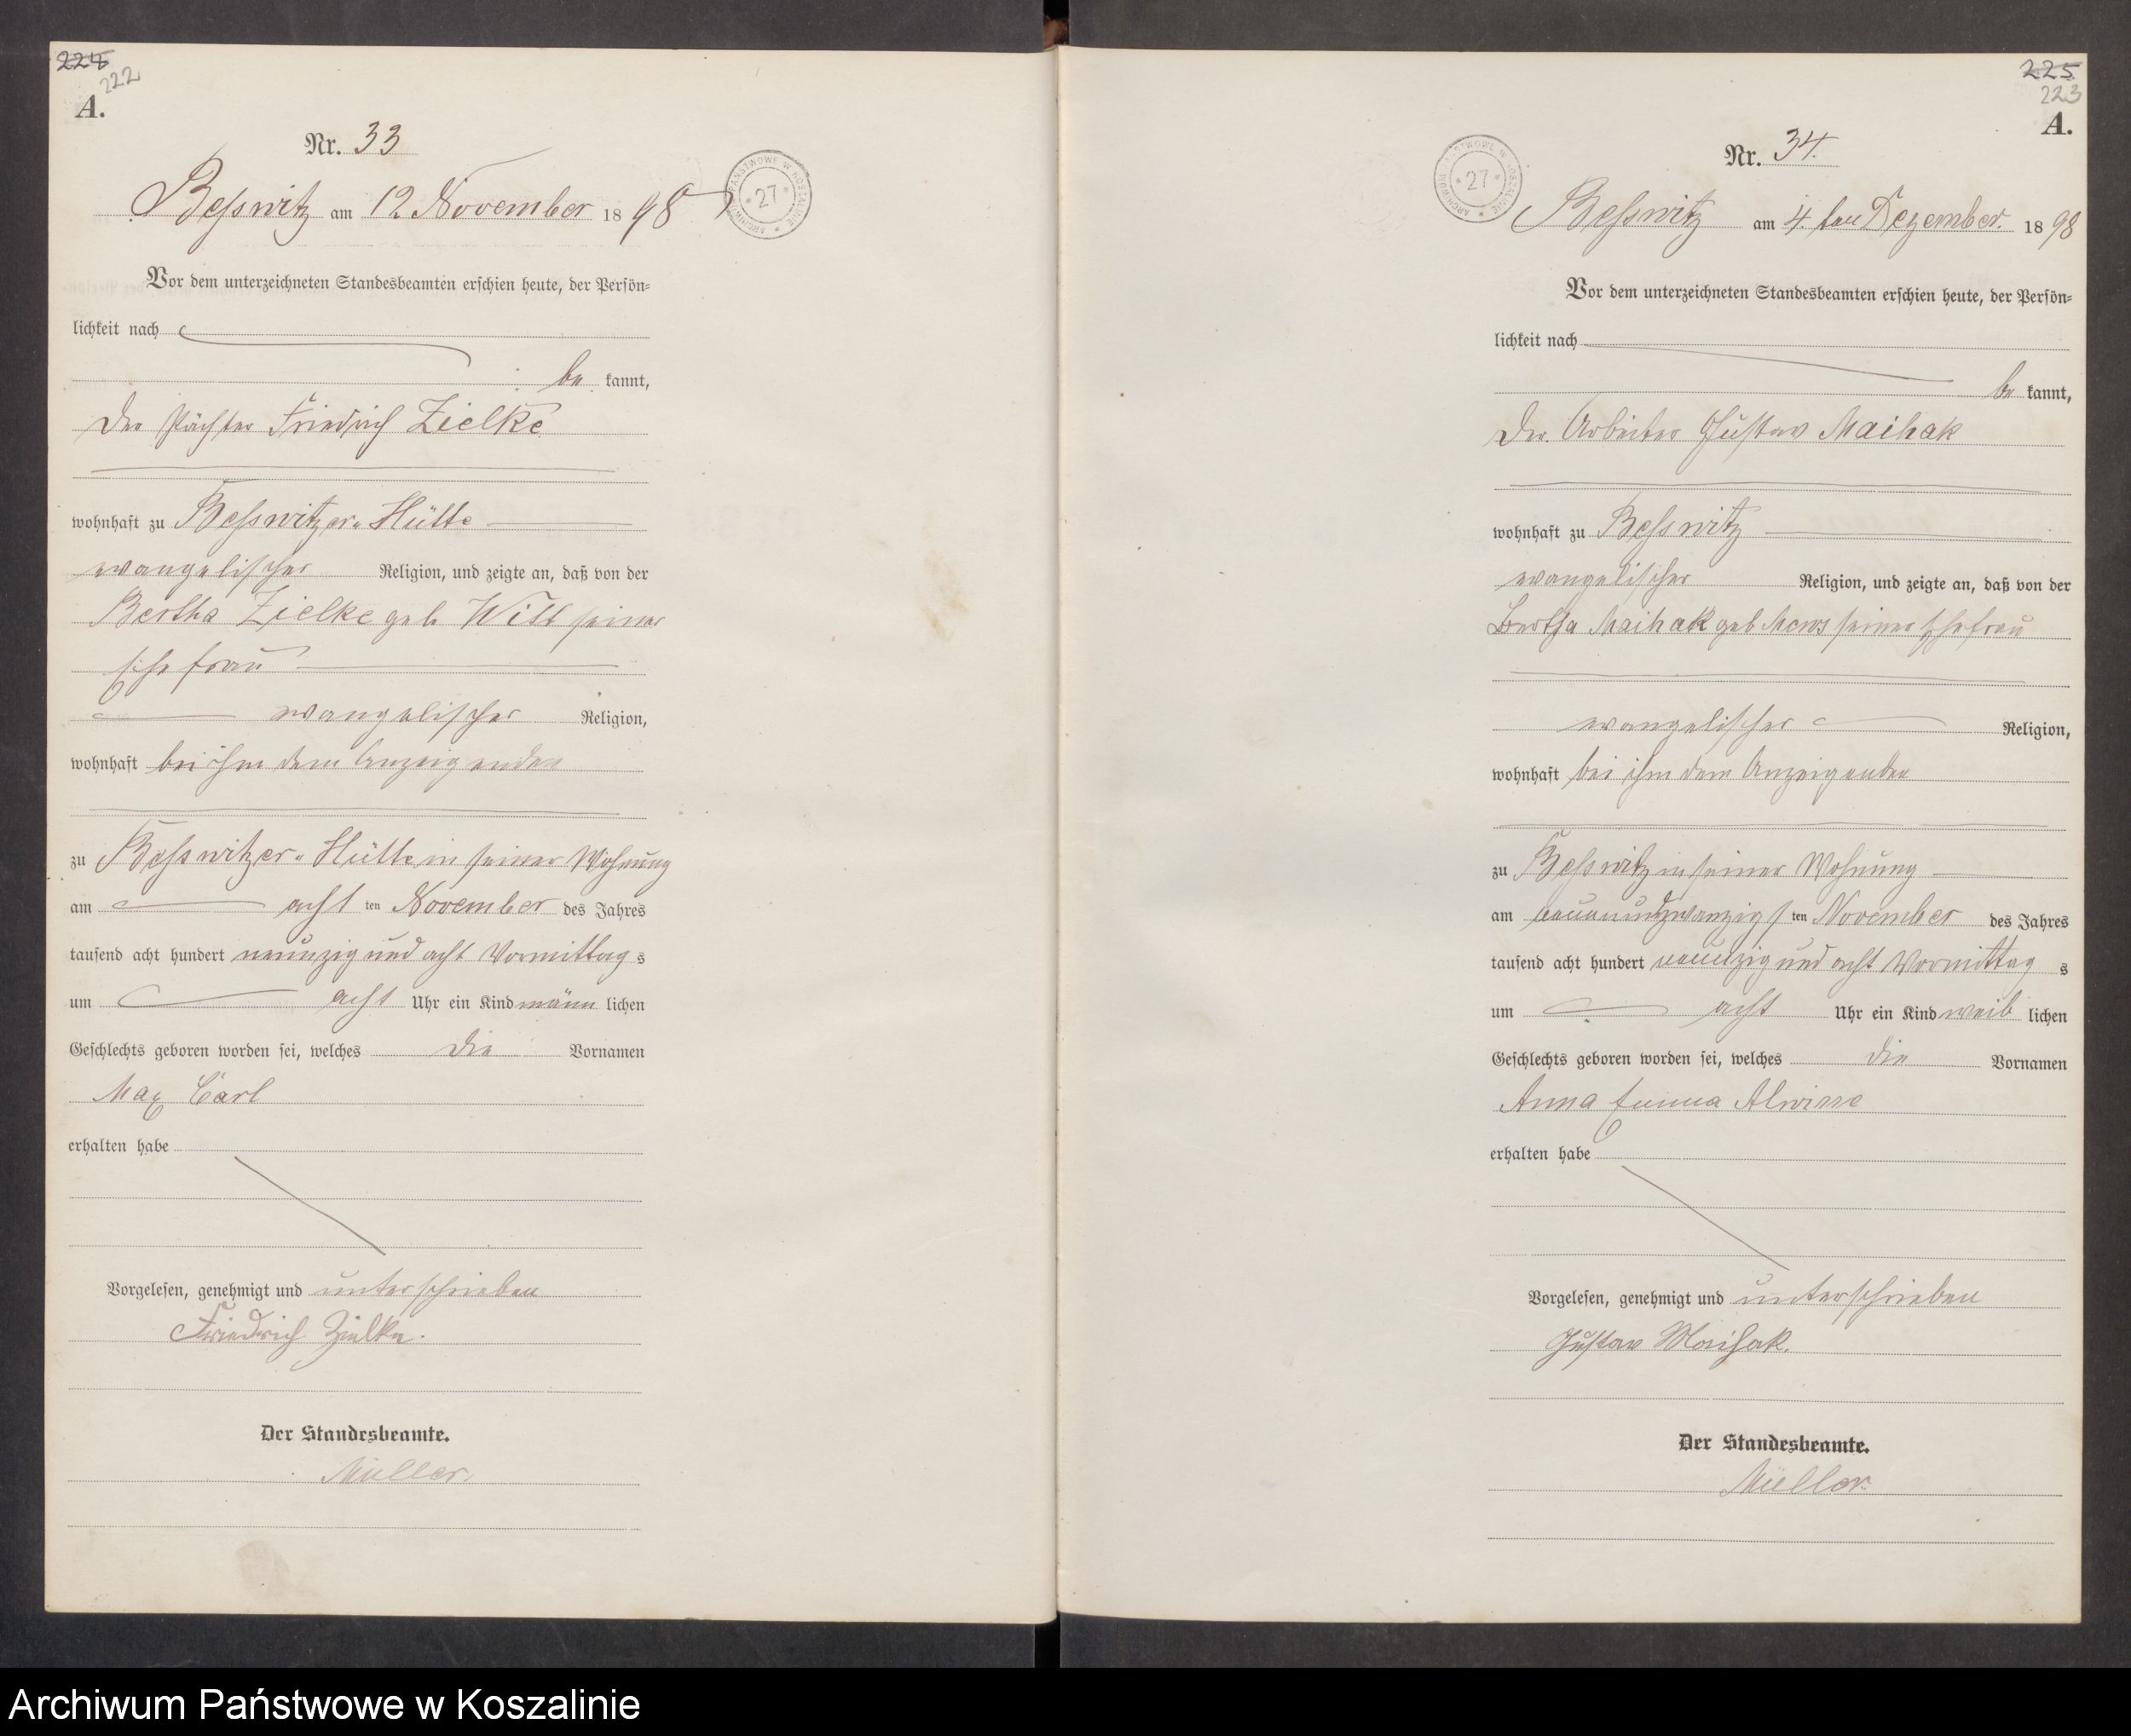 224
222
A.
Nr. 33
ARCHIWUM PAŃSTWOWE W KOSZALINIE * 27 *
Besswitz am 12 November 1898
Vor dem unterzeichneten Standesbeamten erschien heute, der Persön-
lichkeit nach
be kannt,
der Pächter Friedrich Zielke
wohnhaft zu Besswitzer-Hütte
evangelischer Religion, und zeigte an, daß von der
Bertha Zielke geb Witt seiner
Ehefrau
evangelischer Religion,
wohnhaft bei ihm dem Anzeigenden
zu Besswitzer-Hütte in seiner Wohnung
am acht ten November des Jahres
tausend acht hundert neunzig und acht Vormittag s
um acht Uhr ein Kind männ lichen
Geschlechts geboren worden sei, welches die Vornamen
Max Carl
erhalten habe
Vorgelesen, genehmigt und unterschrieben
Friedrich Zielke.
Der Standesbeamte.
Müller.
225
223
A.
Nr. 34.
ARCHIWUM PAŃSTWOWE W KOSZALINIE * 27 *
Besswitz am 4. ten Dezember. 1898
Vor dem unterzeichneten Standesbeamten erschien heute, der Persön-
lichkeit nach
be kannt,
der Arbeiter Gustav Maihak
wohnhaft zu Besswitz
evangelischer Religion, und zeigte an, daß von der
Bertha Maihak geb Mews seiner Ehefrau
evangelischer Religion,
wohnhaft bei ihm dem Anzeigenden
zu Besswitz in seiner Wohnung
am neunundzwanzigs ten November des Jahres
tausend acht hundert neunzig und acht Vormittag s
um acht Uhr ein Kind weib lichen
Geschlechts geboren worden sei, welches die Vornamen
Anna Emma Alwine
erhalten habe
Vorgelesen, genehmigt und unterschrieben
Gustav Maihak.
Der Standesbeamte.
Müller.
Archiwum Państwowe w Koszalinie